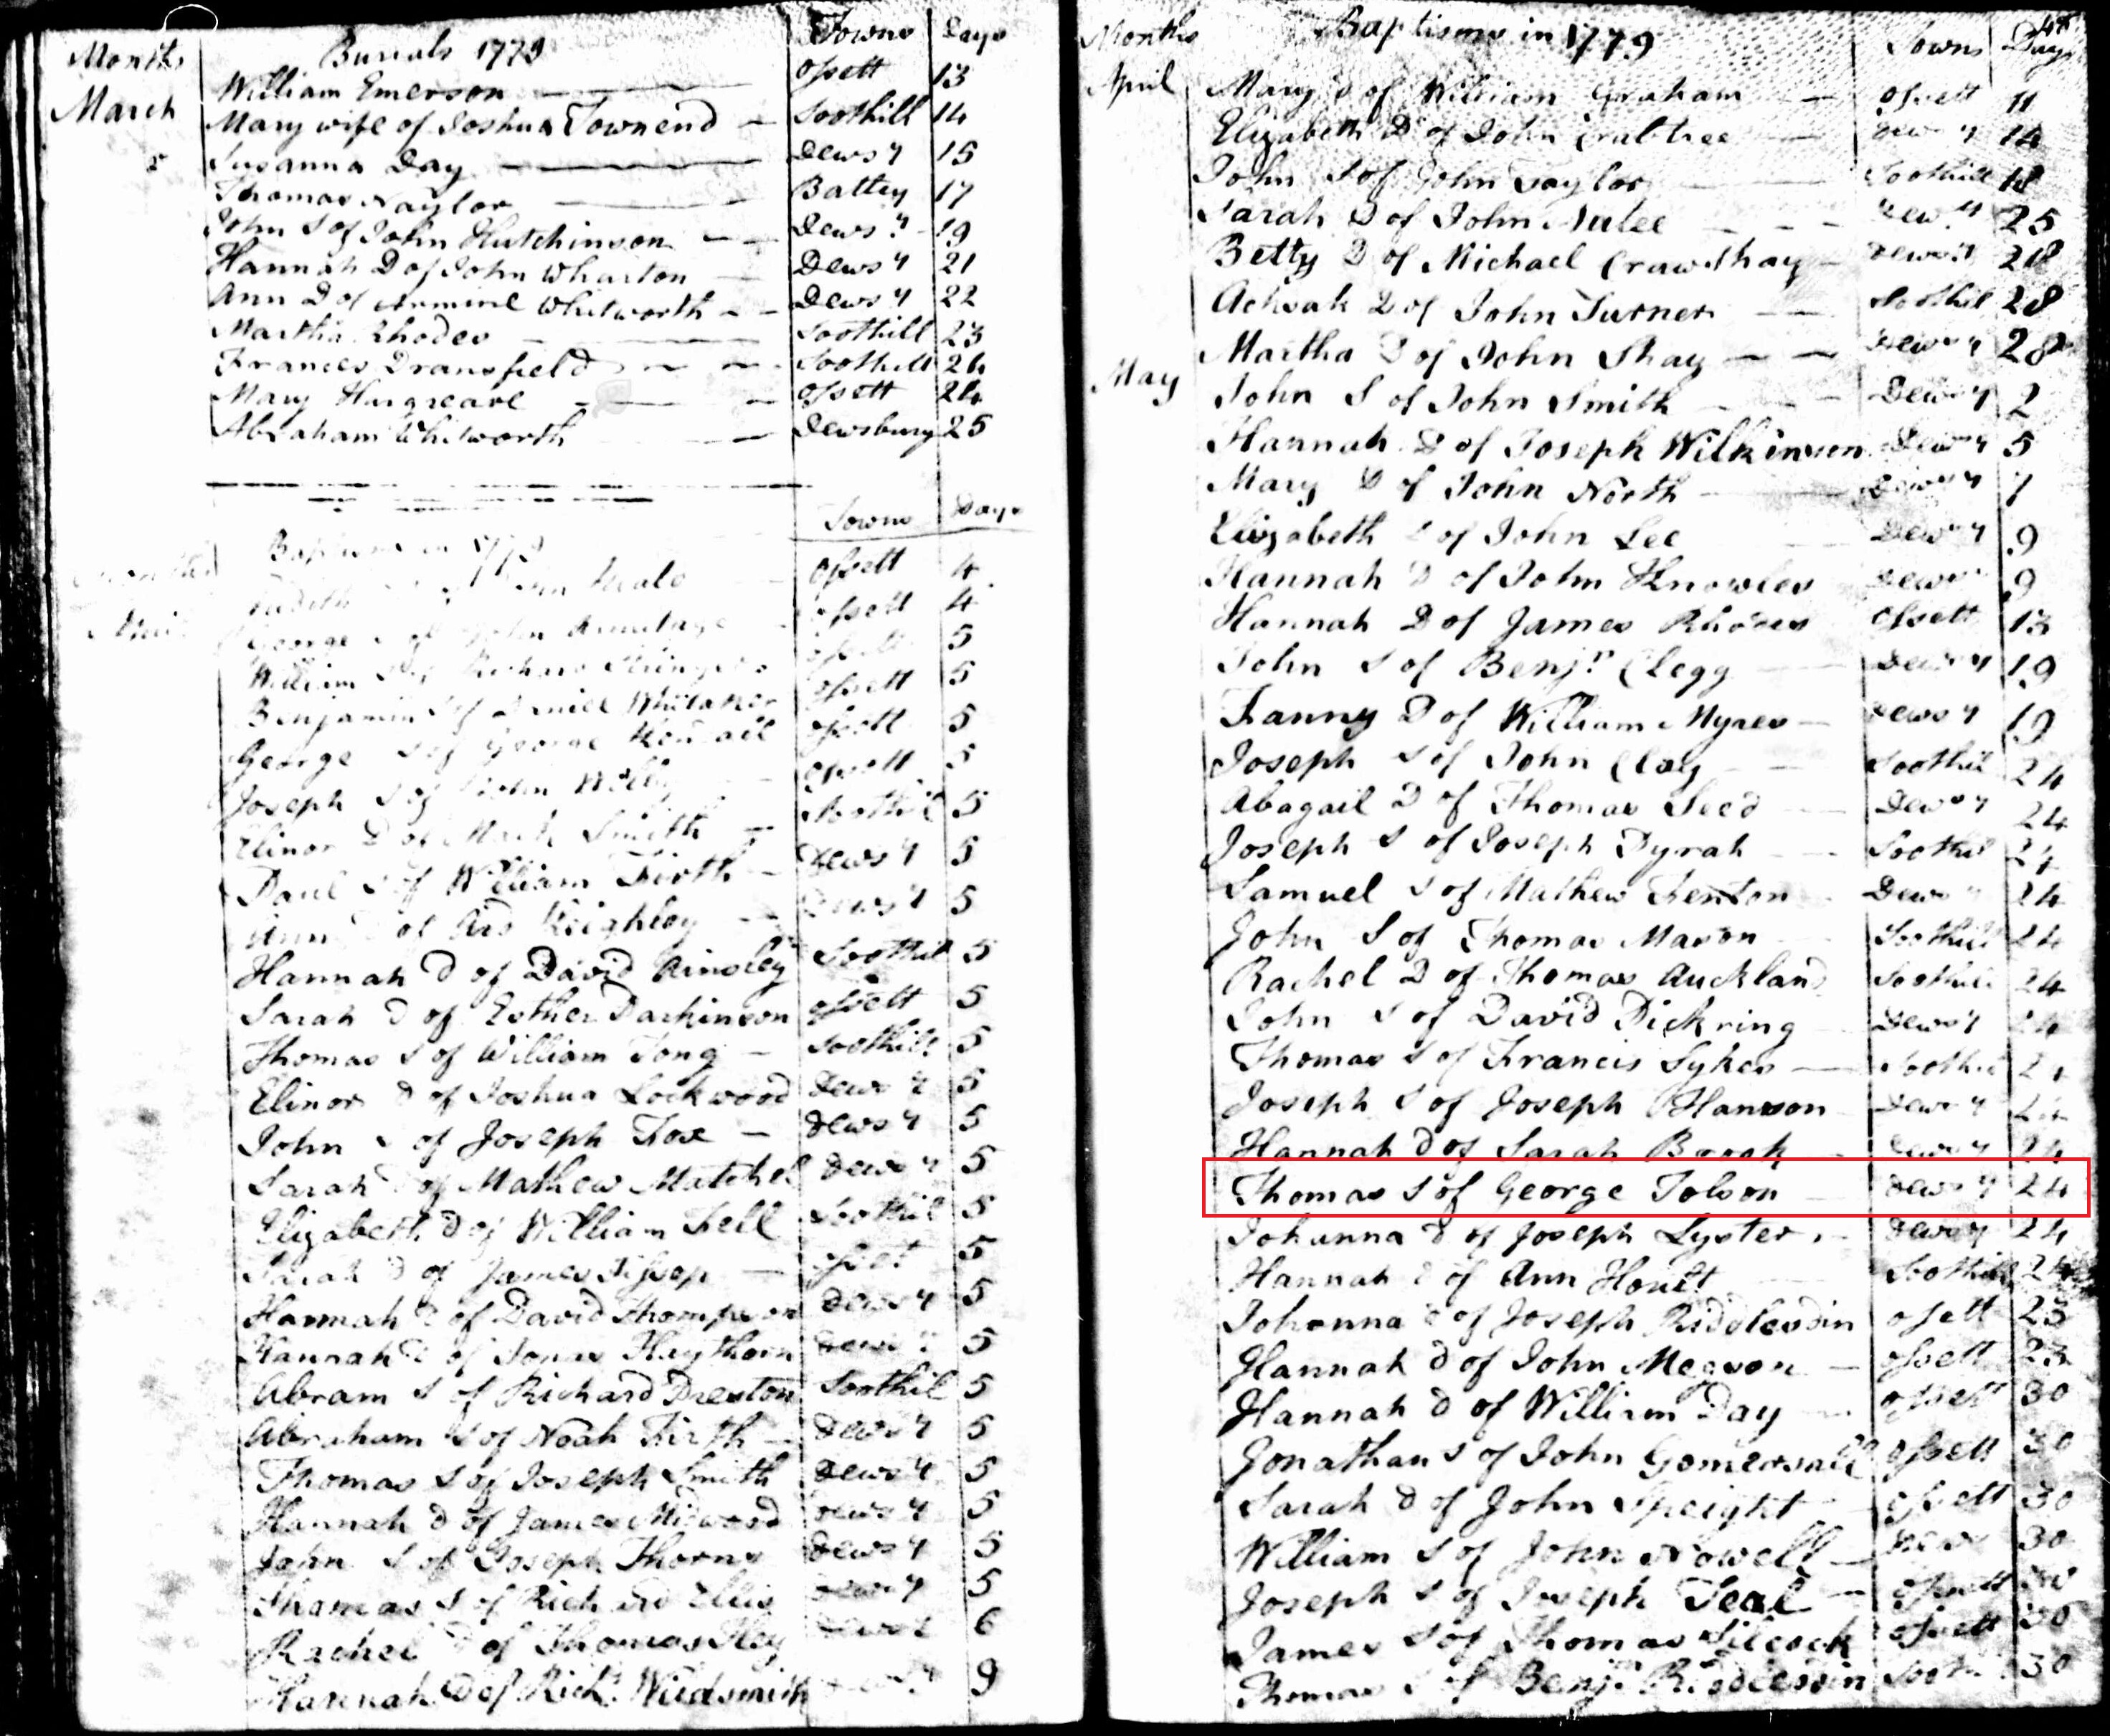 Months Burials 1779 Towns Days
March William Emerson Ossett 13
Mary wife of Joshua Townend Soothill 14
Susanna Day Dewsy 15
Thomas Naylor Batley 17
John S of John Hutchinson Dewsy 19
Hannah D of John Wharton Dewsy 21
Ann D of Whitworth Dewsy 22
Martha Rhodes Soothill 23
Frances Dransfield Soothill 24
Mary Hargreave Ossett 24
Abraham Whitworth Dewsbury 25
Towns Days
Baptisms in 1779
Judith Ossett 4
George S of John Armitage Ossett 4
William S of Richard Stringer 5
Benjamin S of Daniel Whitaker Ossett 5
George S of George Ossett 5
Joseph S of John Ossett 5
Elinor D of Mark Smith Soothil 5
Paul S of William Firth Dewsy 5
Ann D of Keighley Dewsy 5
Hannah D of David Ainsley Soothil 5
Sarah D of Esther Parkinson Ossett 5
Thomas S of William Tong Soothill 5
Elinor D of Joshua Lockwood Dewsy 5
John S of Joseph Fox Dewsy 5
Sarah D of Mathew Matchel Dewsy 5
Elizabeth D of William Fell Soothil 5
Sarah D of James Ossett 5
Hannah D of David Thompson Dewsy 5
Hannah D of Jonas Haythorn Dewsy 5
Abram S of Richard Preston Soothil 5
Abraham S of Noah Firth Dewsy 5
Thomas S of Joseph Smith Dewsy 5
Hannah D of James Midwood Dewsy 5
John S of Joseph Thorns Dewsy 5
Thomas S of Richard Ellis Dewsy 5
Rachel D of Thomas Hey 6
Hannah D of Richd 9
Months Baptisms in 1779 Towns Days
April Mary D of William Graham Ossett 11
Elizabeth D of John Crabtree Dewsy 14
John S of John Taylor Soothill 18
Sarah D of John Dewsy 25
Betty D of Michael Crawshay Dewsy 28
Achsah D of John Turner Soothil 28
Martha D of John Shay Dewsy 28
May John S of John Smith Dewsy 2
Hannah D of Joseph Wilkinson Dewsy 5
Mary D of John North Dewsy 7
Elizabeth D of John Lee Dewsy 9
Hannah D of John Knowles Dewsy 9
Hannah D of James Rhodes Ossett 13
John S of Benjn Clegg Dewsy 19
Fanny D of William Myres Dewsy 19
Joseph S of John Clay Soothil 24
Abagail D of Thomas Seed Dewsy 24
Joseph S of Joseph Pyrah Soothil 24
Samuel S of Mathew Fenton Dewsy 24
John S of Thomas Mason Soothill 24
Rachel D of Thomas Auckland Soothill 24
John S of David Pickring Dewsy 24
Thomas S of Francis Sykes Soothil 24
Joseph S of Joseph Hanson Dewsy 24
Hannah D of Sarah Brook Dewsy 24
Thomas S of George Tolson Dewsy 24
Johanna D of Joseph Lyster Dewsy 24
Hannah D of Ann Hoult Soothill 24
Johanna D of Joseph Riddlesdin Ossett 23
Hannah D of John Megson Ossett 23
Hannah D of William Day Ossett 30
Jonathan S of John Gomersall Ossett 30
Sarah D of John Speight Ossett 30
William S of John Nowell Dewsy 30
Joseph S of Joseph Teal Ossett 30
James S of Thomas Silcock Ossett 30
Thomas S of Benjn Riddlesdin 30